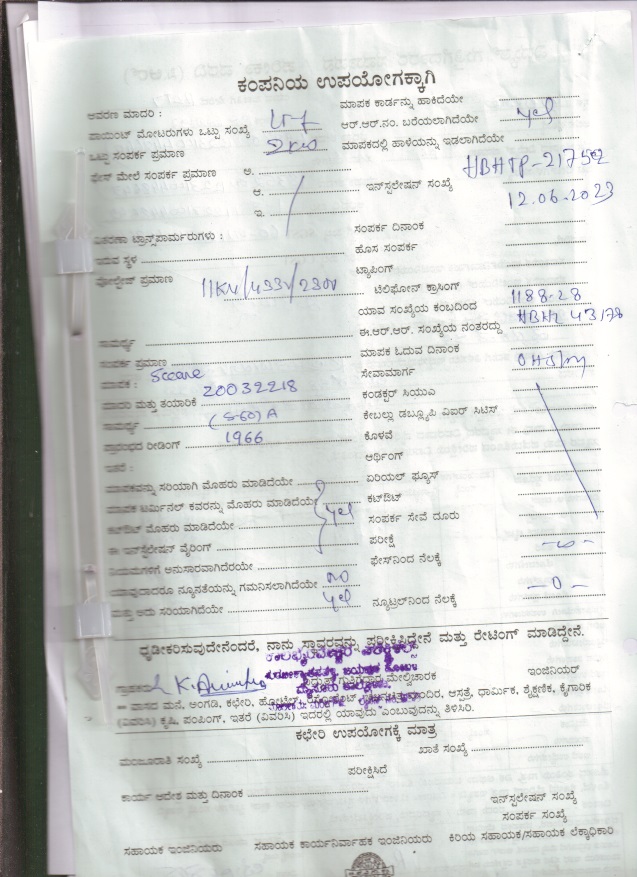 ಕಂಪನಿಯ ಉಪಯೋಗಕ್ಕಾಗಿ
ಆವರಣ ಮಾದರಿ :
ಮಾಪಕ ಕಾರ್ಡನ್ನು ಹಾಕಿದೆಯೇ
ಪಾಯಿಂಟ್ ಮೋಟರುಗಳು ಒಟ್ಟು ಸಂಖ್ಯೆ
ಆರ್.ಆರ್.ನಂ. ಬರೆಯಲಾಗಿದೆಯೇ yes
ಒಟ್ಟು ಸಂಪರ್ಕ ಪ್ರಮಾಣ 2KW
ಮಾಪಕದಲ್ಲಿ ಹಾಳೆಯನ್ನು ಇಡಲಾಗಿದೆಯೇ
ಫೇಸ್ ಮೇಲೆ ಸಂಪರ್ಕ ಪ್ರಮಾಣ ಅ.
ಆ.
ಇನ್‌ಸ್ಟಲೇಷನ್ ಸಂಖ್ಯೆ HBHTP-217502
ಇ.
12.06.2023
ವಿತರಣಾ ಟ್ರಾನ್ಸ್‌ಫಾರ್ಮರುಗಳು :
ಸಂಪರ್ಕ ದಿನಾಂಕ
ಇರುವ ಸ್ಥಳ
ಹೊಸ ಸಂಪರ್ಕ
ವೋಲ್ಟೇಜ್ ಪ್ರಮಾಣ 11KV/433V/230V
ಟ್ಯಾಪಿಂಗ್
ಟೆಲಿಫೋನ್ ಕ್ರಾಸಿಂಗ್
ಯಾವ ಸಂಖ್ಯೆಯ ಕಂಬದಿಂದ 1188-28
ಸಾಮರ್ಥ್ಯ
ಈ.ಆರ್.ಆರ್. ಸಂಖ್ಯೆಯ ನಂತರದ್ದು 43178
ಸಂಪರ್ಕ ಪ್ರಮಾಣ
ಮಾಪಕ ಓದುವ ದಿನಾಂಕ
ಮಾಪಕ :
ಸೇವಾಮಾರ್ಗ
ಮಾದರಿ ಮತ್ತು ತಯಾರಿಕೆ 20032218
ಕಂಡಕ್ಟರ್ ಸಿಯುಎ
ಸಾಮರ್ಥ್ಯ (5-60)A
ಕೇಬಲ್ಲು ಡಬ್ಲ್ಯೂಪಿ ವಿಐರ್ ಸಿಟಿಸ್
ಪ್ರಾರಂಭದ ರೀಡಿಂಗ್ 1966
ಕೊಳವೆ
ಇತರೆ :
ಆರ್ಥಿಂಗ್
ಮಾಪಕವನ್ನು ಸರಿಯಾಗಿ ಮೊಹರು ಮಾಡಿದೆಯೇ
ಏರಿಯಲ್ ಫ್ಯೂಸ್
ಮಾಪಕ ಟರ್ಮಿನಲ್ ಕವರನ್ನು ಮೊಹರು ಮಾಡಿದೆಯೇ
ಕಟ್‌ಔಟ್
ಕಟ್‌ಔಟ್ ಮೊಹರು ಮಾಡಿದೆಯೇ yes
ಸಂಪರ್ಕ ಸೇವೆ ದೂರು
ಈ ಇನ್‌ಸ್ಟಲೇಷನ್ ವೈರಿಂಗ್
ಪರೀಕ್ಷೆ
ನಿಯಮಗಳಿಗೆ ಅನುಸಾರವಾಗಿದೆರೆಯೇ
ಫೇಸ್‌ನಿಂದ ನೆಲಕ್ಕೆ
ಯಾವುದಾದರೂ ನ್ಯೂನತೆಯನ್ನು ಗಮನಿಸಲಾಗಿದೆಯೇ NO
ಮತ್ತು ಅದು ಸರಿಯಾಗಿದೆಯೇ yes
ನ್ಯೂಟ್ರಲ್‌ನಿಂದ ನೆಲಕ್ಕೆ -0-
ಧೃಡೀಕರಿಸುವುದೇನೆಂದರೆ, ನಾನು ಸ್ಥಾವರವನ್ನು ಪರೀಕ್ಷಿಸಿದ್ದೇನೆ ಮತ್ತು ರೇಟಿಂಗ್ ಮಾಡಿದ್ದೇನೆ.
ಗ್ರಾಹಕರು
ವಿದ್ಯುತ್ ಗುತ್ತಿಗೆದಾರ ಮೇಲ್ವಿಚಾರಕ
ಇಂಜಿನಿಯರ್
— ವಾಸದ ಮನೆ, ಅಂಗಡಿ, ಕಛೇರಿ, ಹೋಟೆಲ್, ಆಸತ್ರೆ, ಧಾರ್ಮಿಕ, ಶೈಕ್ಷಣಿಕ, ಕೈಗಾರಿಕ
(ವಿವರಿಸಿ) ಕೃಷಿ, ಪಂಪಿಂಗ್, ಇತರೆ (ವಿವರಿಸಿ) ಇದರಲ್ಲಿ ಯಾವುದು ಎಂಬುವುದನ್ನು ತಿಳಿಸಿರಿ.
ಕಛೇರಿ ಉಪಯೋಗಕ್ಕೆ ಮಾತ್ರ
ಮಂಜೂರಾತಿ ಸಂಖ್ಯೆ
ಖಾತೆ ಸಂಖ್ಯೆ
ಪರೀಕ್ಷಿಸಿದೆ
ಕಾರ್ಯ ಆದೇಶ ಮತ್ತು ದಿನಾಂಕ
ಇನ್‌ಸ್ಟಲೇಷನ್ ಸಂಖ್ಯೆ
ಸಂಪರ್ಕ ಸಂಖ್ಯೆ
ಸಹಾಯಕ ಇಂಜಿನಿಯರು
ಸಹಾಯಕ ಕಾರ್ಯನಿರ್ವಾಹಕ ಇಂಜಿನಿಯರು
ಕಿರಿಯ ಸಹಾಯಕ/ಸಹಾಯಕ ಲೆಕ್ಕಾಧಿಕಾರಿ